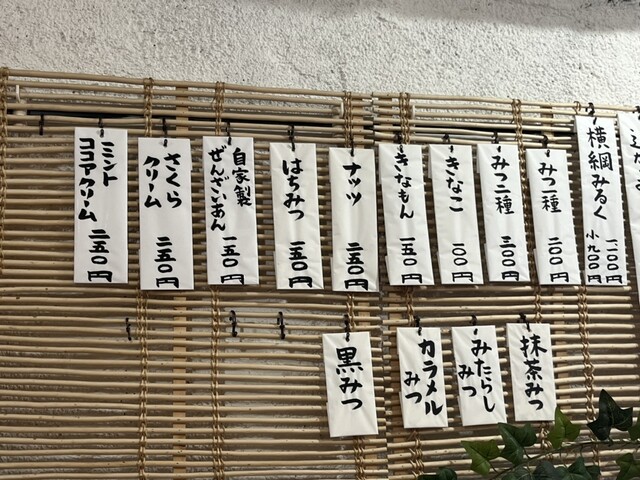 横綱みるく
小九〇〇円
みつ一種 二〇〇円
みつ二種 三〇〇円
きなこ 一〇〇円
きなもん 一五〇円
ナッツ 二五〇円
はちみつ 二五〇円
自家製
ぜんざいあん 一五〇円
さくら
クリーム 二五〇円
ミント
ココアクリーム 二五〇円
抹茶みつ
みたらし
みつ
カラメル
みつ
黒みつ